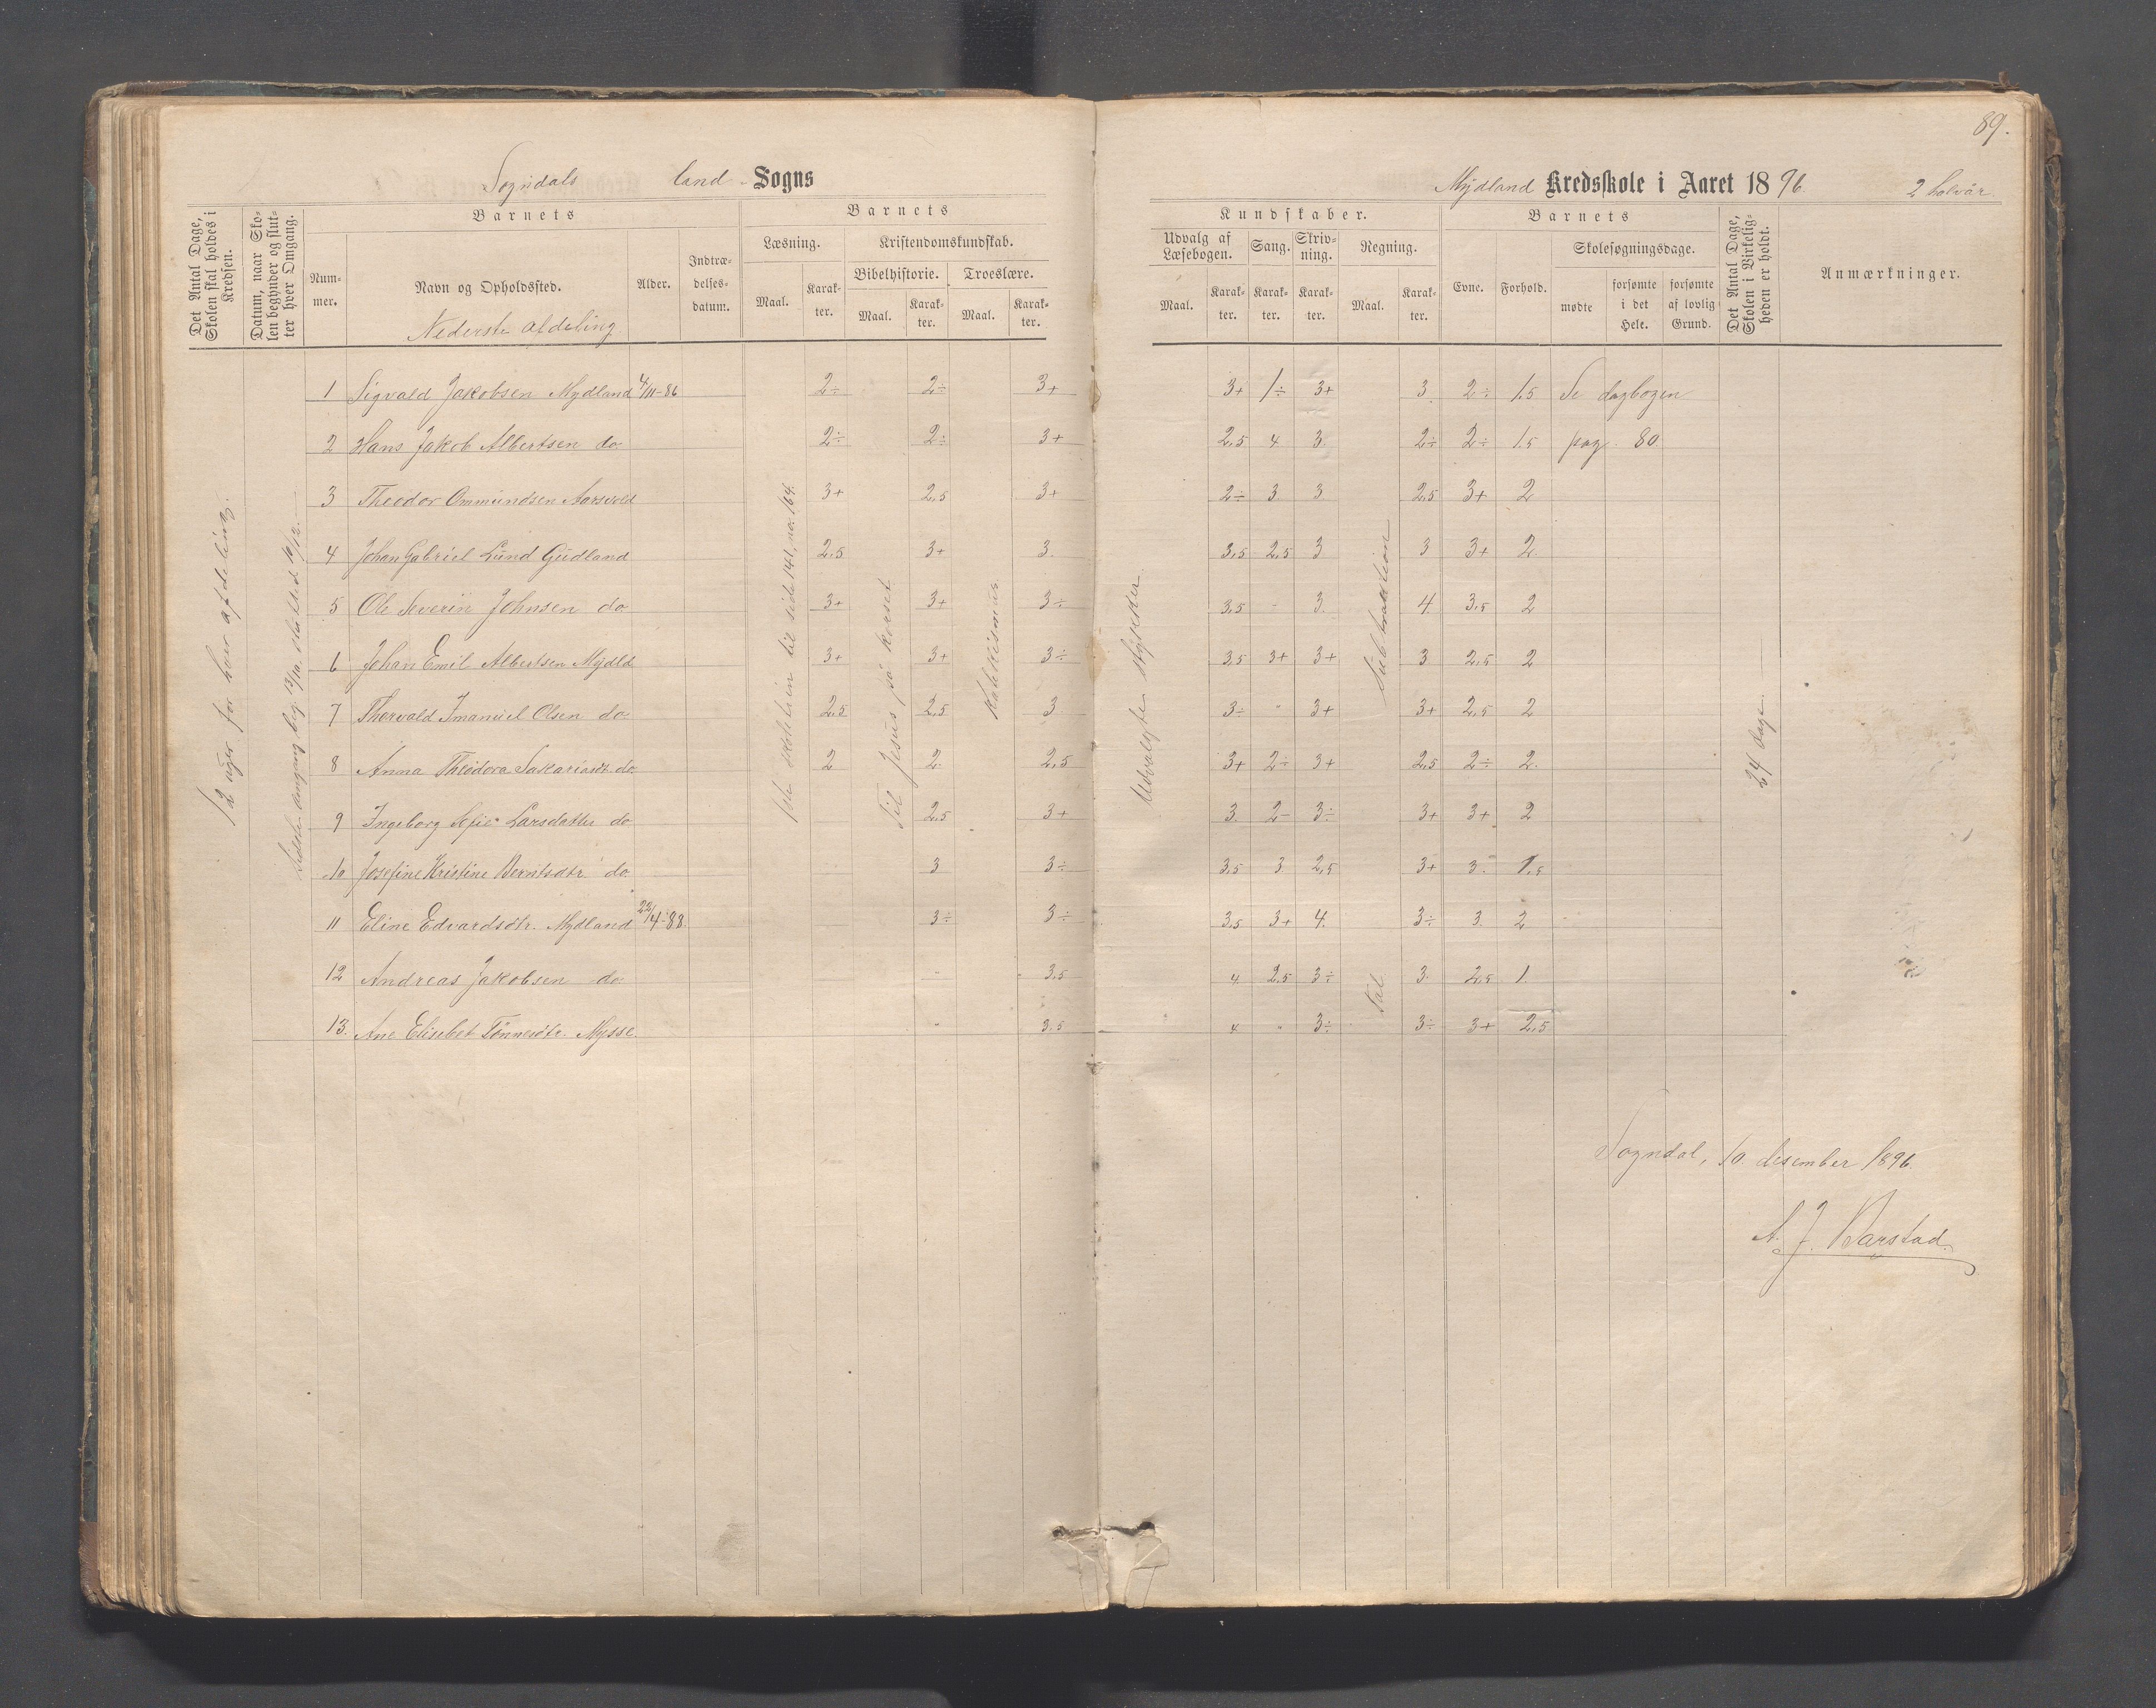 89.
Sogndals land - Sogns
Mydland Kredsskole i Aaret 1896. 2 halvår
Det Antal Dage, Skolen skal holdes i Kredsen.
Datum, naar Skolen begynder og slutter hver Omgang.
Barnets
Nummer.
Navn og Opholdssted.
Alder.
Indtrædelsesdatum.
Nederste afdeling
Barnets
Læsning.
Maal.
Karakter.
Kristendomskundskab.
Bibelhistorie.
Maal.
Karakter.
Troeslære.
Maal.
Karakter.
Kundskaber.
Udvalg af Læsebogen.
Maal.
Karakter.
Sang.
Karakter.
Skrivning.
Karakter.
Regning.
Maal.
Karakter.
Barnets
Evne.
Forhold.
Skolesøgningsdage.
mødte
forsømte i det Hele.
forsømte af lovlig Grund.
Det Antal Dage, Skolen i Virkeligheden er holdt.
Anmærkninger.
12 uger for hver afdeling.
Sidste omgang beg. 13/10, sluttet 10/12.
1ste skoletrin til side 141, no. 164.
Til Jesus på korset
Katekismus
Udvalgte stykker
Subtraktion
Tal
24 dage.
1 Sigvald Jakobsen Mydland 4/11-86 2÷ 2÷ 3+ 3+ 1÷ 3+ 3 2÷ 1.5 Se dagbogen
2 Hans Jakob Albertsen do 2÷ 2÷ 3+ 2,5 4 3 2÷ 2÷ 1.5 pag. 80
3 Theodor Ommundsen Aarsvold 3+ 2,5 3+ 2÷ 3 3 2,5 3+ 2
4 Johan Gabriel Lund Gudland 2,5 3+ 3. 3,5 2,5 3 3 3+ 2
5 Ole Severin Johnsen do 3+ 3+ 3÷ 3,5 - 3. 4 3,5 2
6 Johan Emil Albertsen Mydld 3+ 3+ 3÷ 3,5 3+ 3+ 3 2,5 2
7 Thorvald Imanuel Olsen do 2,5 2,5 3 3÷ " 3+ 3+ 2,5 2
8 Anna Theodora Sakariasdt. do. 2 2. 2,5 3+ 2÷ 3+ 2,5 2÷ 2.
9 Ingeborg Sofie Larsdatter do 2,5 3+ 3. 2- 3÷ 3+ 3+ 2
10 Josefine Kristine Berntsdtr do 3 3÷ 3,5 3 2,5 3+ 3. 1.5
11 Eline Edvardsdtr. Mydland 22/4-88. 3÷ 3÷ 3,5 3+ 4. 3÷ 3. 2
12 Andreas Jakobsen do " 3,5 4 2,5 3÷ 3. 2,5 1.
13. Ane Elisebet Tönnesdtr. Mysse. " 3,5 4 " 3÷ 3÷ 3+ 2,5
Sogndal, 10. desember 1896.
A. J. Barstad.